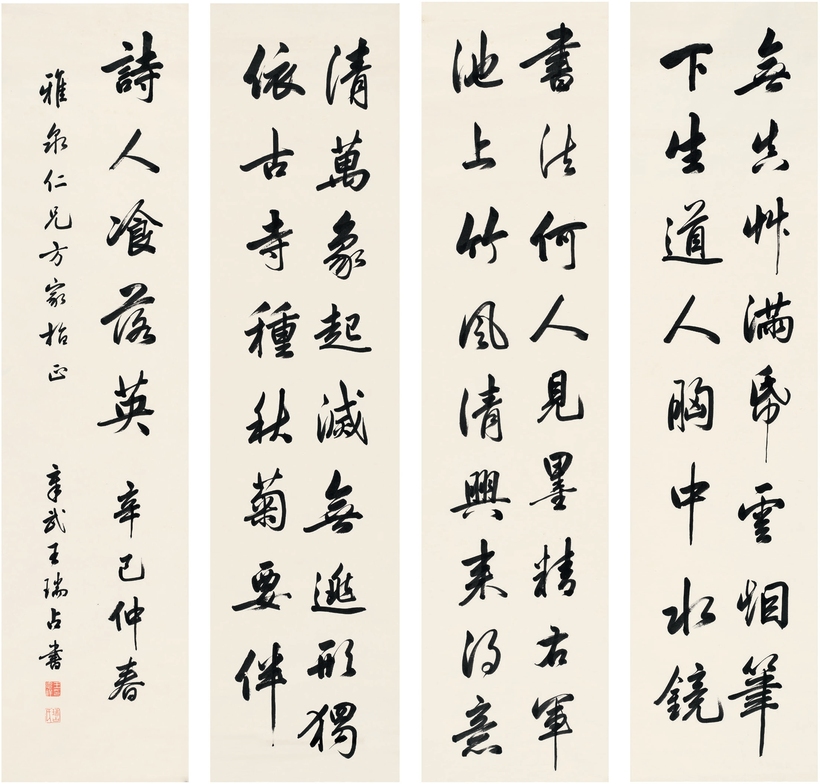 無真艸滿帋雲烟筆
下生道人胸中水鏡
書法何人見墨精右軍
池上竹風清興来得意
清萬象起滅無逃形獨
依古寺種秋菊要伴
詩人飡落英 辛巳仲春
雅泉仁兄方家指正 章武王瑞占書